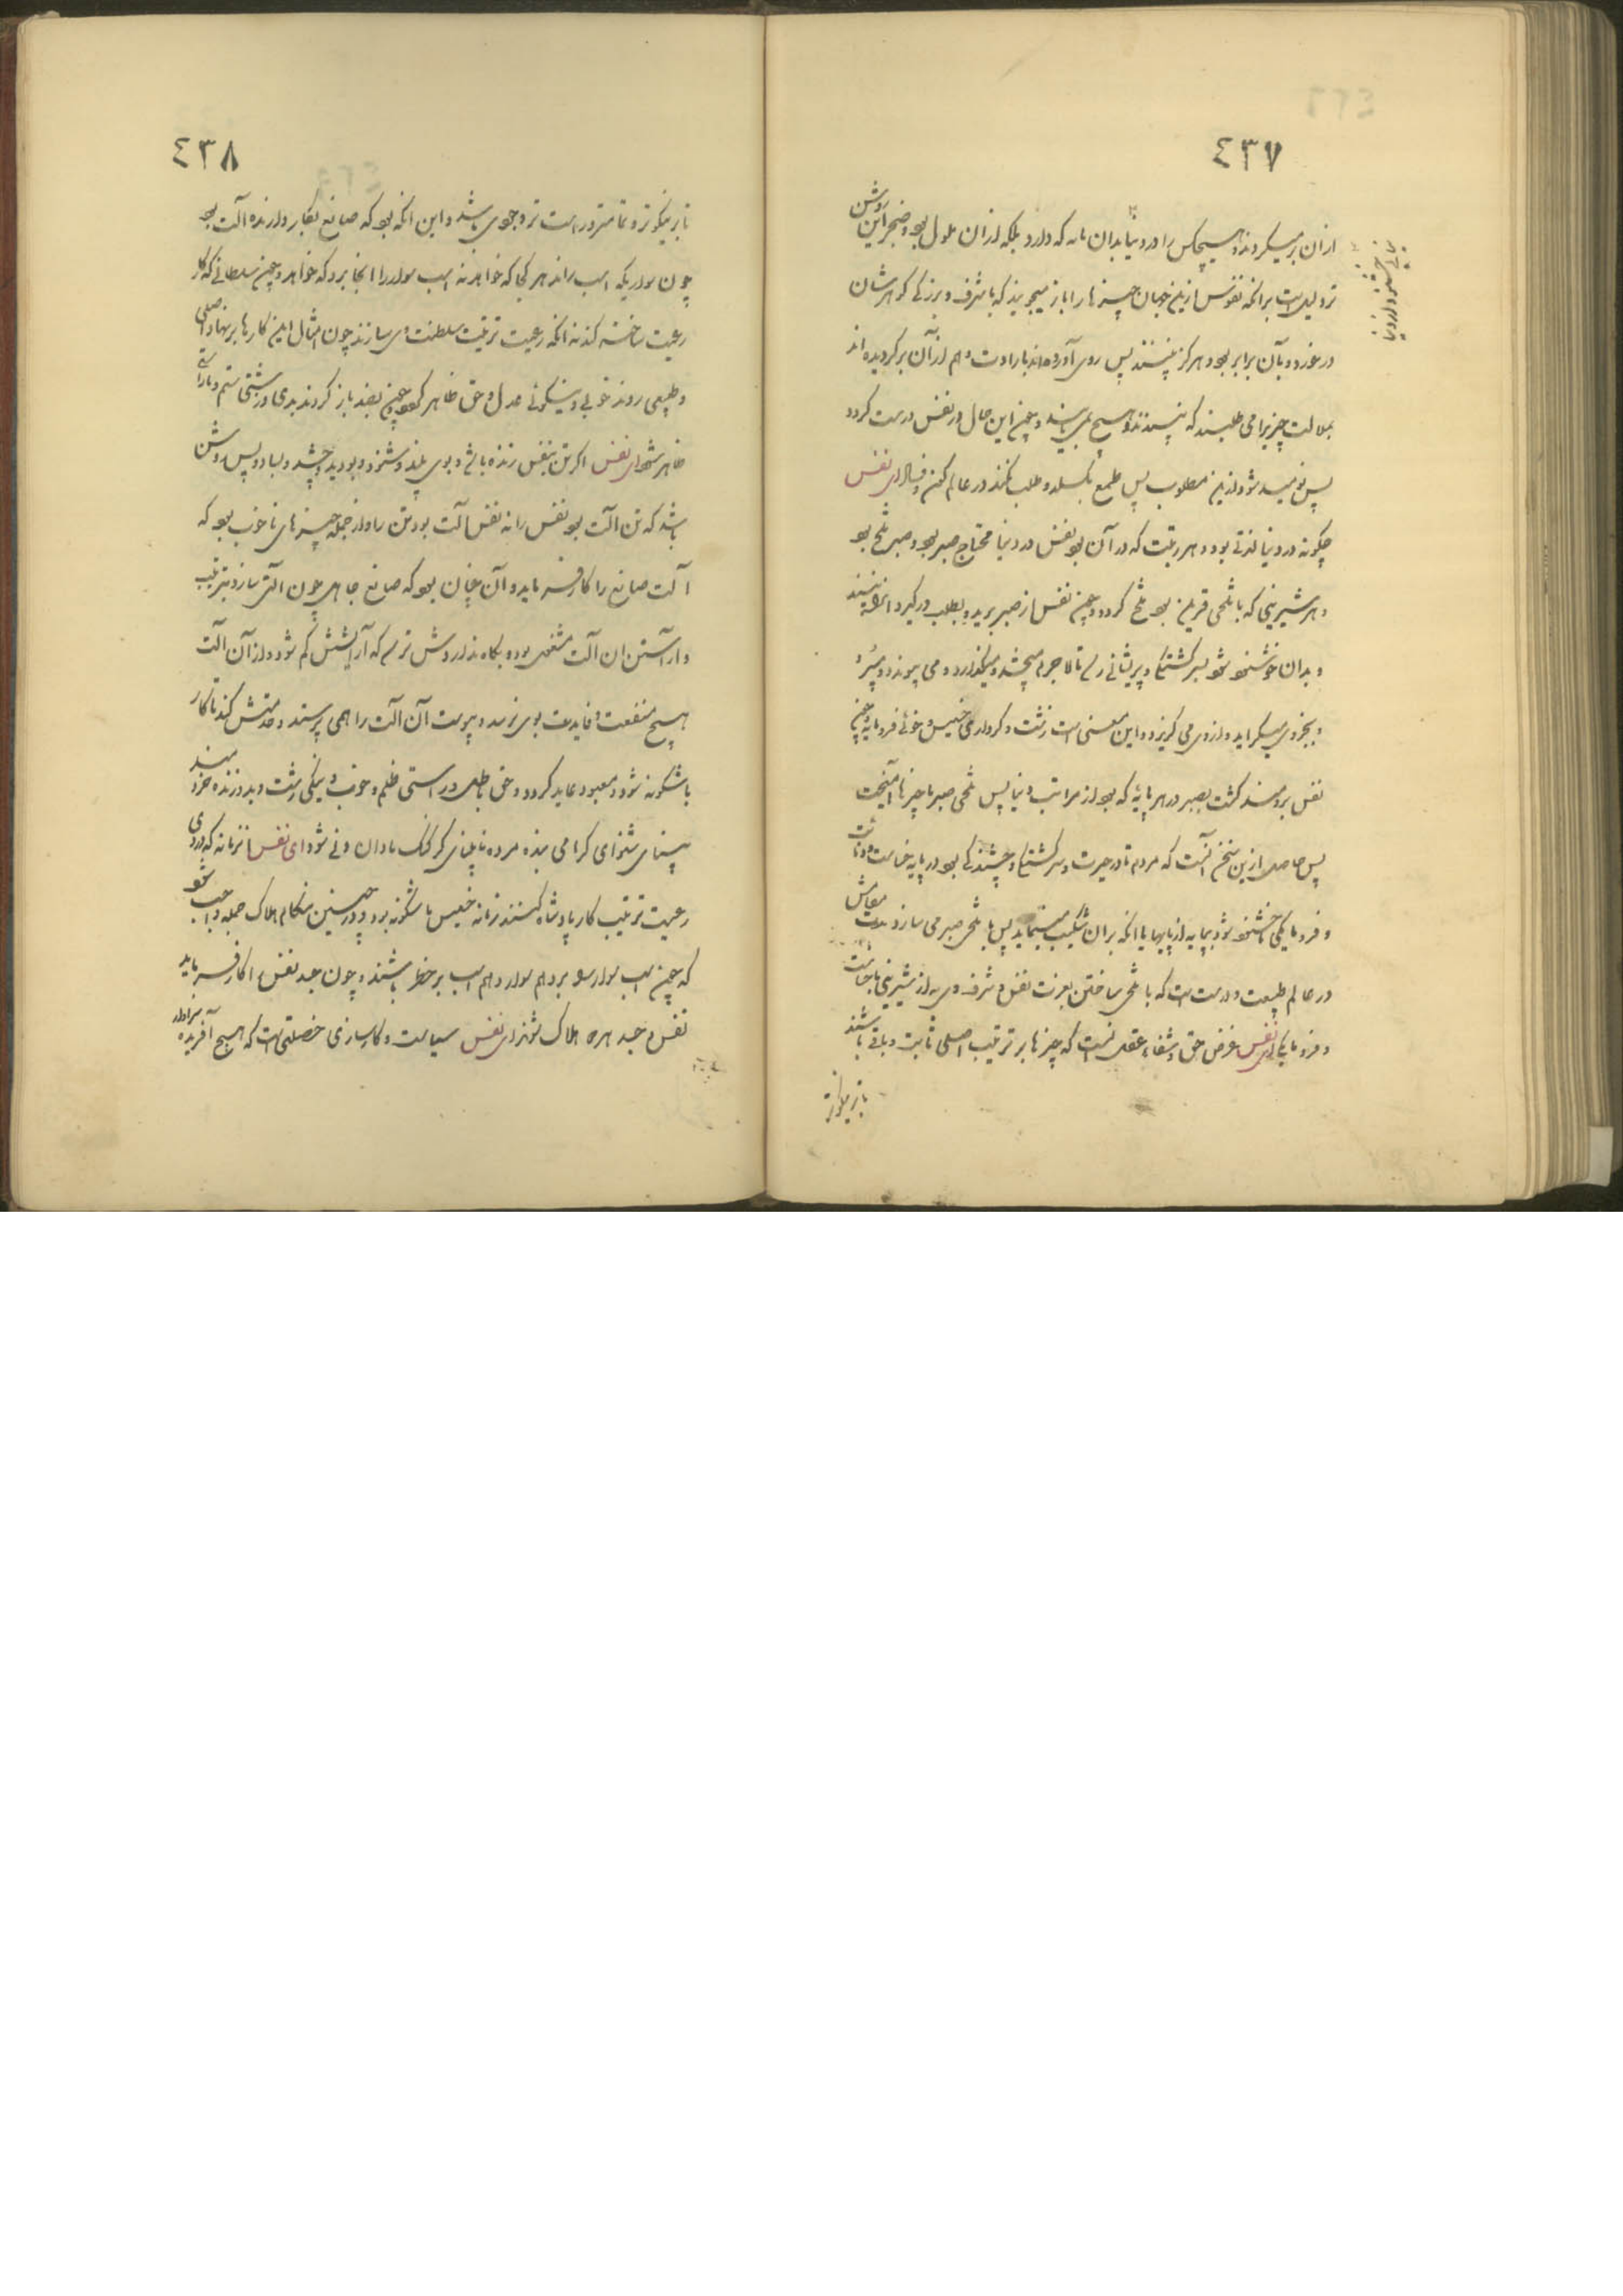 ٤٣٧
ازان بر میکردند و هیچکس را در دنیا بدان مانه که دارد بلکه ازان ملول بود و ضجر این روشن
تر دلیل است برانکه نفوس ازین جهان چیزها را باز میجویند که با شرف و بزرگی گوهرشان
در خورد و بآن برابر بود و هرگز نپسندند پس روی آورده‌اند بارادت و هم از آن برگردیده‌اند
بملالت چیزیرا می طلبند که پسندند و هیچ نمی یابند و چون این حال در نفس درست گردد
پس نومید شود ازین مطلوب پس طمع بگسلد و طلب نکند در عالم کون و فساد ای نفس
چگونه در دنیا لذتی بود و هر رتبت که در آن بود نفس در دنیا محتاج صبر بود و صبر تلخ بود
و هر شیرینی که با تلخی قرین بود تلخ گردد و چون نفس از صبر برید و بطلب در گیرد
و بدان خوشنود شود بسرگشتگی و پریشانی رأی تا لاجرم میچشد و میگذارد و می پیوندد و میبرد
و بجز وی میگراید و از وی می گریزد و این معنی است زشت و کرداری خسیس و خوئی فرومایه و چون
نفس برومند گشت بصبر در هر پایهٔ که بود از مراتب دنیا پس تلخی صبر با چیزها آمیخت
پس حاصل ازین سخن آنست که مردم تا در حیرت و سرگشتگی و چشندگی بود در پایه خساست و دنائت
و فرومایگی تا خشنود شود بپایه از پایها یا انکه بران شکیب مینماید پس با تلخی صبر می سازد مدت معاش
در عالم طبیعت و درست است که با تلخی ساختن بعزت نفس و شرف وی به از شیرینی با خساست
و فرومایگی ای نفس غرض حق و شفاء عقل آنست که چیزها بر ترتیب اصلی ثابت و باقی باشند
باز نیکوتر
٤٣٨
باز نیکوتر و تمامتر و راست تر وجوی باشد و این انکه بود که صانع بکار دارنده آلت بود
چون سواریکه اسب راند هر کجا که خواهد نه اسب سوار را انجا برد که خواهد و چون سلطانی که کار
رعیت ساخته کند نه انکه رعیت ترتیب سلطنت وی سازند چون امثال این کارها بر نهاد اصلی
و طبیعی روند خوبی و نیکوئی عدل و حق ظاهر گردد و چون بضد باز گردند بدی و زشتی ستم و ناراستی
ظاهر شود ای نفس اگر تن بنفس زنده باشد و بوی بیند و شنود و بوید و چشد و بساود پس روشن
باشد که تن آلت بود نفس را نه نفس آلت بود تن را و از جمله چیزهای ناخوب بود که
آلت صانع را کار فرماید و آن چنان بود که صانع جاهل چون آلتی سازد بترتیب
و آراستن ان آلت مشغول بود و بکاه نداردش ترسد که آرایشش کم شود و از آن آلت
هیچ منفعت و فایدت بوی نرسد و پیوست آن آلت را همی پرستد و خدمتش کند تا کار
باشگونه شود و معبود عابد گردد و حق باطل و راستی ظلم و خوب و نیکی زشت و بد و زنده
بینای شنوای گرامی بنده مرده نابینای کر گنگ نادان دنی شود ای نفس
رعیت ترتیب کار پادشاه کنند زمانه خسیس باشگونه بود و در چنین هنگام هلاک جمله واجب شود
که چون اسب سوار سو برد هم سوار و هم اسب بر خطر باشند و چون جسد نفس را کار فرماید
نفس و جسد هر دو هلاک شوند ای نفس سیاست و کارسازی خصلتی است که هیچ آفریده سزاوار